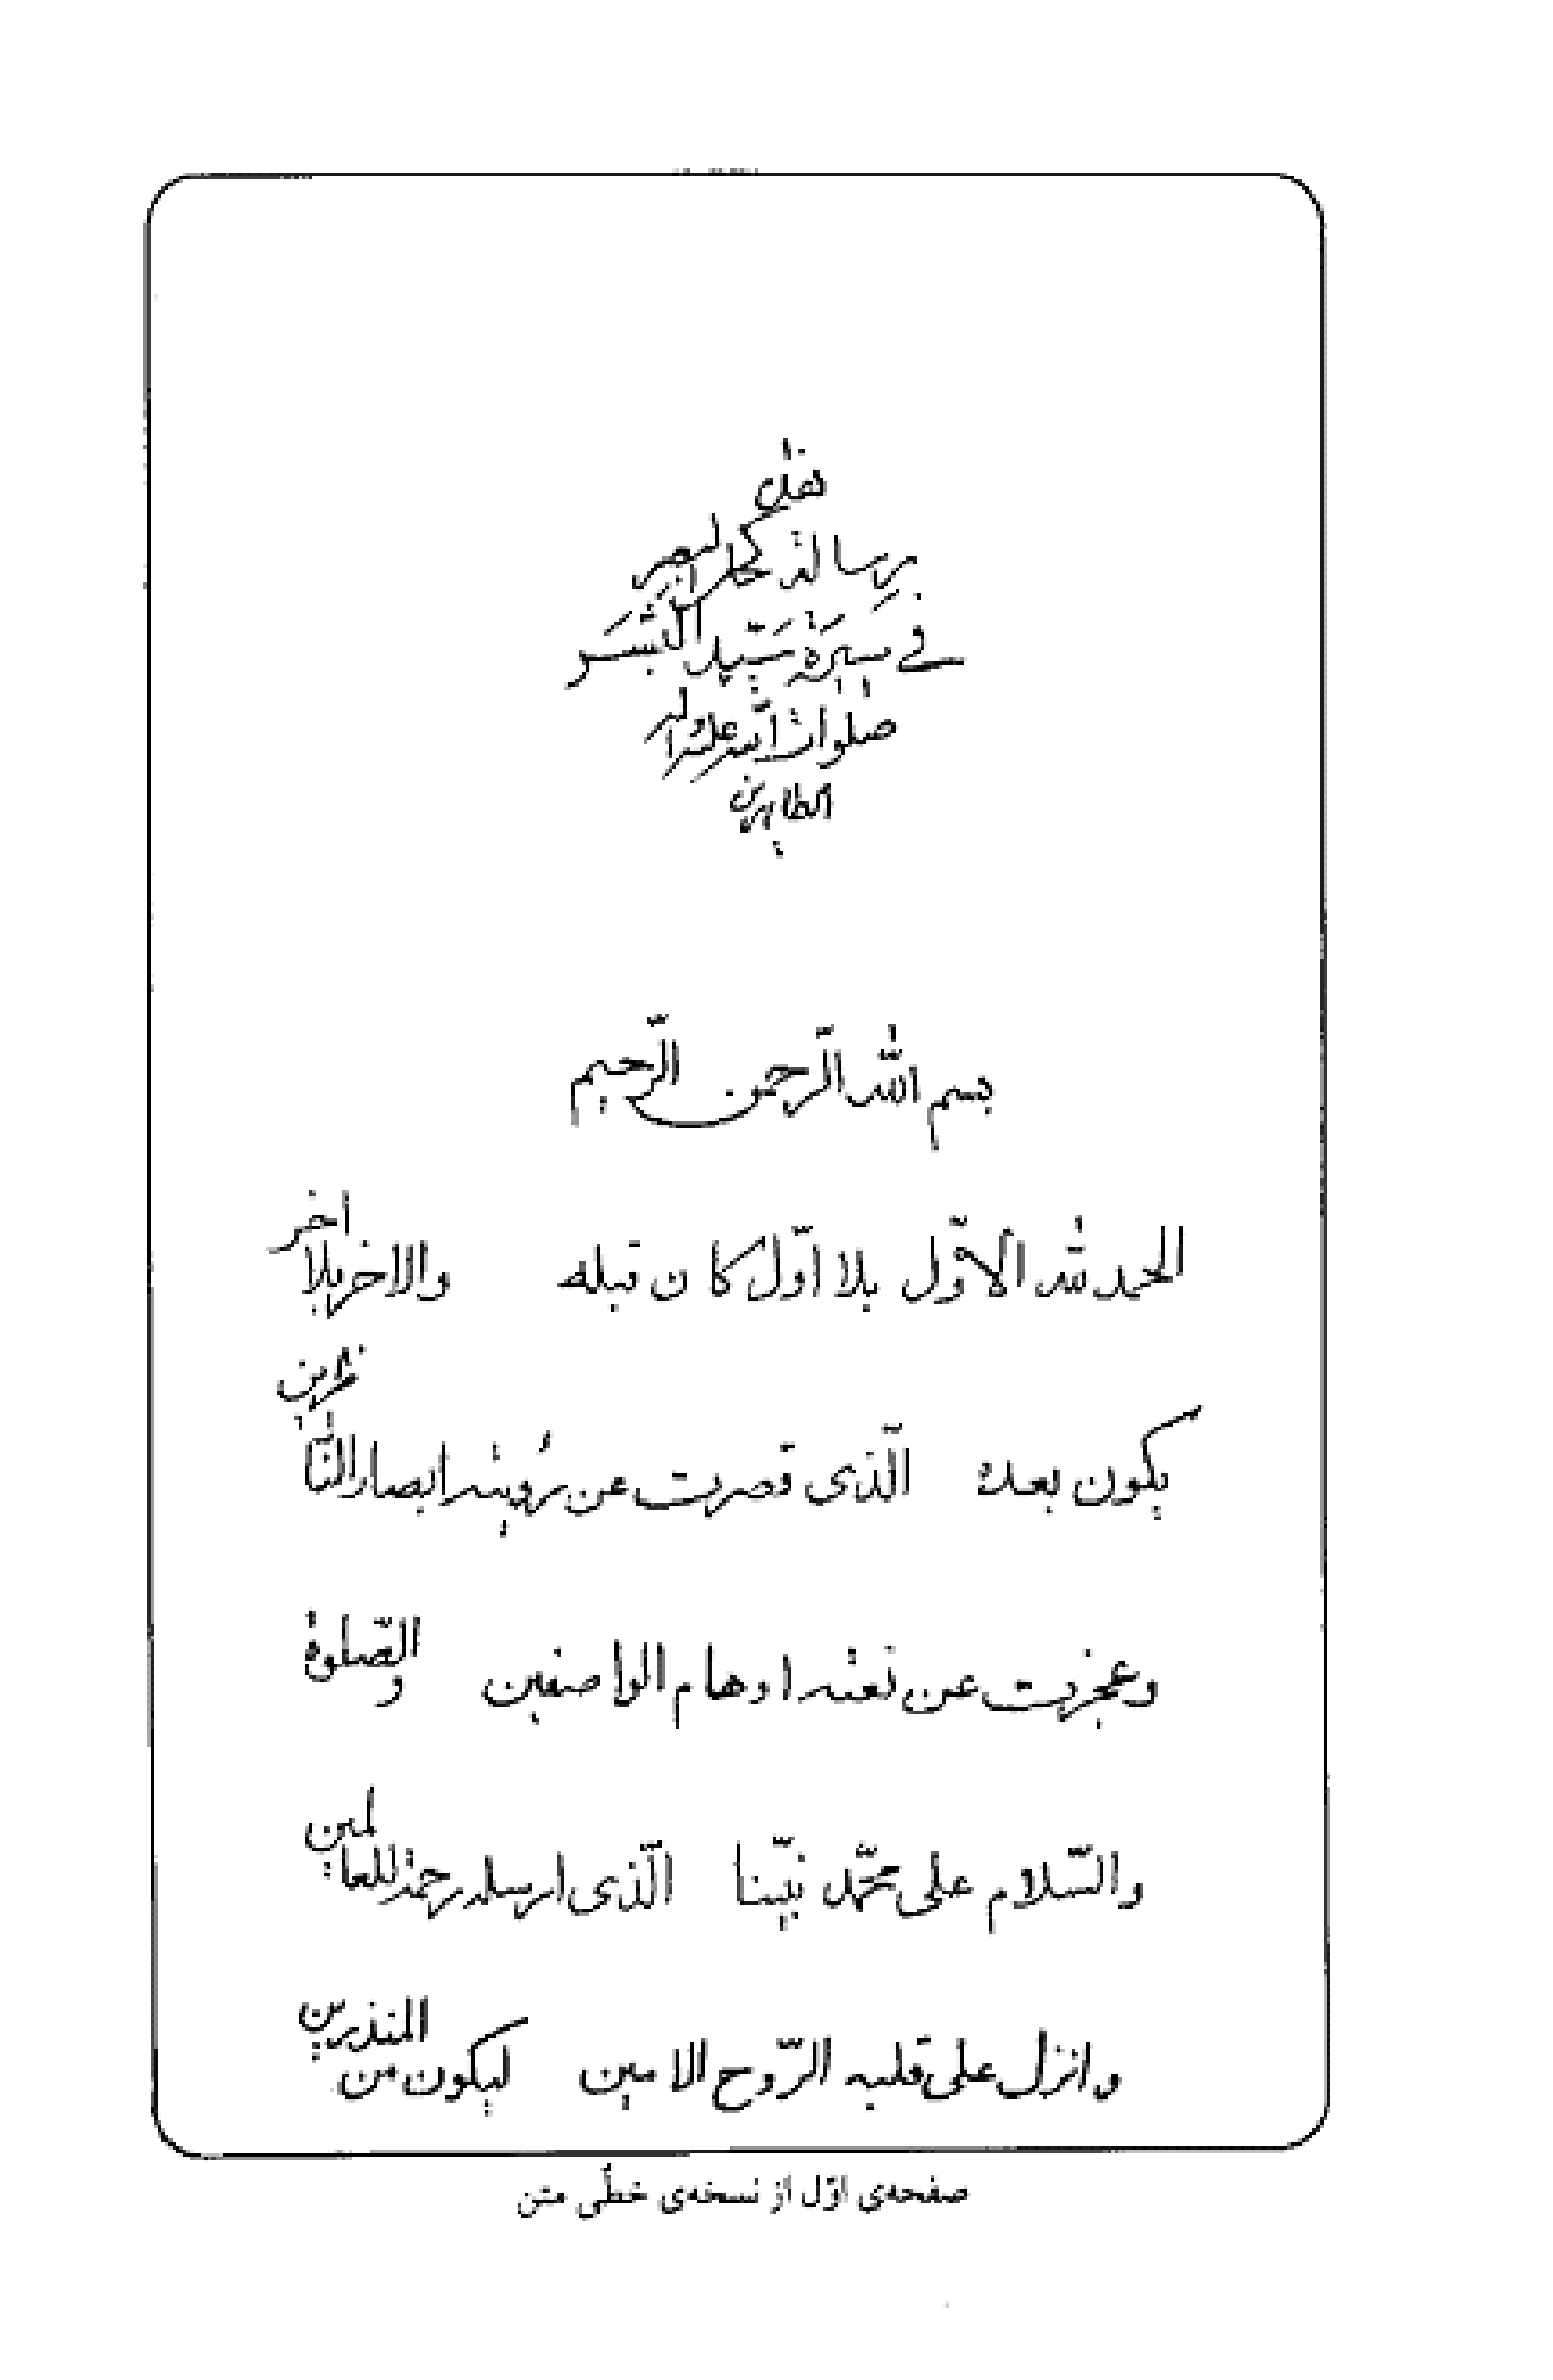 هذه
رسالة كحل البصر
في سيرة سيّد البَشَر
صلوات الله عليه وآله
الطاهرين
بسم الله الرّحمن الرّحيم
الحمد لله الاوّل بلا اوّل كان قبله والاخر بلا اخر
يكون بعده الّذى قصرت عن رُويته ابصار النّاظرين
وعجزت عن نعته اوهام الواصفين والصّلوة
والسّلام على محمّد نبيّنا الّذى ارسله رحمة للعالمين
وانزل على قلبه الرّوح الامين ليكون من المنذرين
صفحه‌ی اوّل از نسخه‌ی خطّی متن